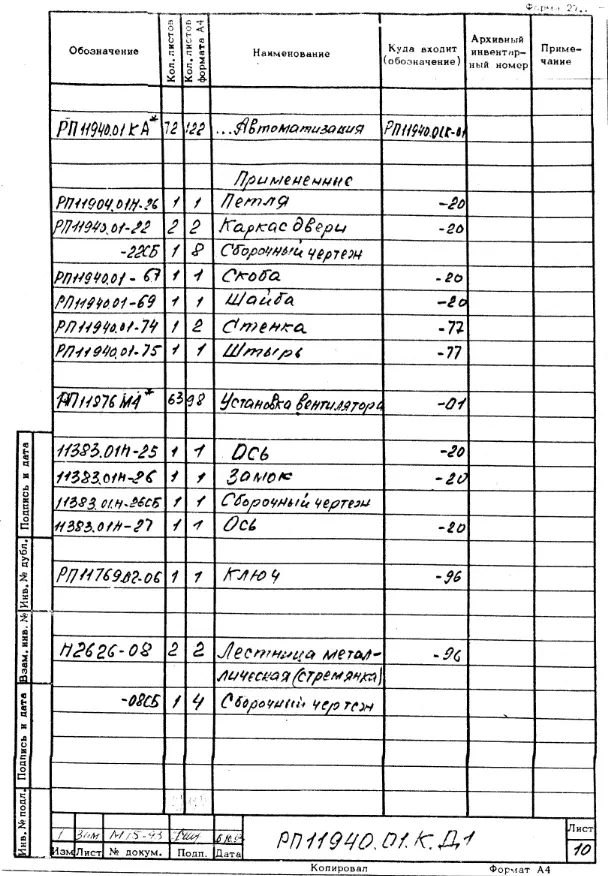 Обозначение Кол. листов Кол. листов формата А4 Наименование Куда входит (обозначение) Архивный инвентарный номер Примечание
РП11940.01КА* 12 122 ...Автоматизация РП11940.01К-01
Примененные
РП11904.01Н-26 1 1 Петля -20
РП11940.01-22 2 2 Каркас двери -20
-22СБ 1 8 Сборочный чертеж
РП11940.01-67 1 1 Скоба -20
РП11940.01-69 1 1 Шайба -20
РП11940.01-74 1 2 Стенка -77
РП11940.01-75 1 1 Штырь -77
РП11976М4* 63 98 Установка вентилятора -01
11383.01Н-25 1 1 Ось -20
11383.01Н-26 1 1 Замок -20
11383.01.Н-26СБ 1 1 Сборочный чертеж
11383.01Н-27 1 1 Ось -20
РП11769.02-06 1 1 Ключ -96
Н2626-08 2 2 Лестница метал- -96
лическая (стремянка)
-08СБ 1 4 Сборочный чертеж
Инв. № подл. Подпись и дата Взам. инв. № Инв. № дубл. Подпись и дата
1 Зам М15-43
Изм Лист № докум. Подп. Дата
РП11940.01.К.Д1
Лист
10
Копировал Формат А4